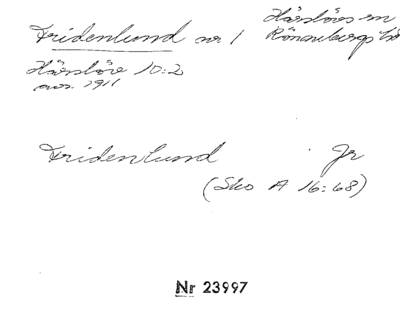 Fridenlund nr 1
Härslövs sn
Rönnebergs hd
Härslöv 10:2
avs. 1911
Fridenlund Jr
(Sko A 16:68)
Nr 23997